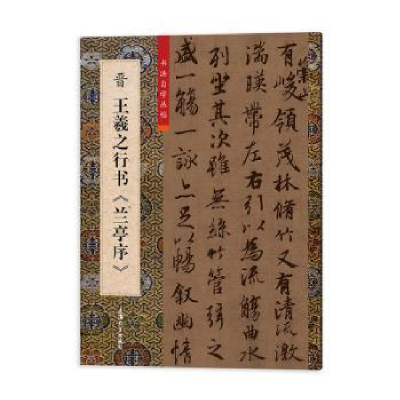 晋 王羲之行书《兰亭序》
书法自学丛帖
崇山
有峻領茂林脩竹又有清流激
湍暎帶左右引以為流觴曲水
列坐其次雖無絲竹管弦之
盛一觴一詠亦足以暢叙幽情